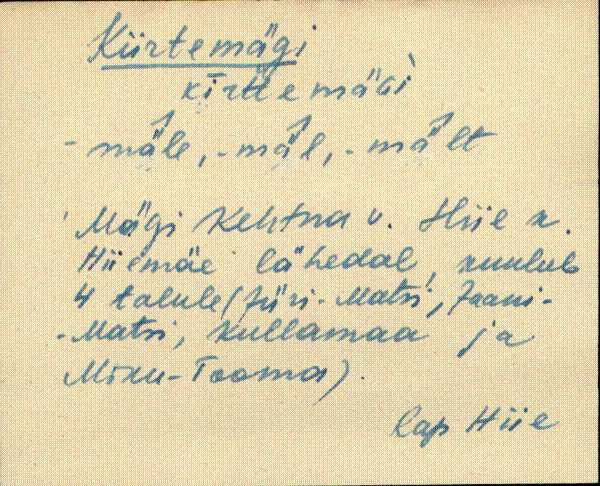 Kiirtemägi
kīrttemäGì
-mäle, -mäl, -mält
Mägi Kehtna v. Hiie k.
Hiiemäe lähedal, kuulub
4 talule (Jüri-Matsi, Jaani-
-Matsi, Kullamaa ja
Miku-Tooma).
Rap Hiie